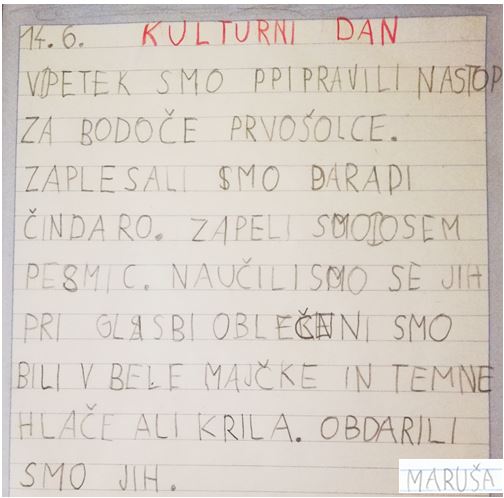 14.6. KULTURNI DAN
V PETEK SMO PPIPRAVILI NASTOP
ZA BODOČE PRVOŠOLCE.
ZAPLESALI SMO ĐARADI
ČINDARO. ZAPELI SMO OSEM
PESMIC. NAUČILI SMO SE JIH
PRI GLASBI OBLEČENI SMO
BILI V BELE MAJČKE IN TEMNE
HLAČE ALI KRILA. OBDARILI
SMO JIH.
MARUŠA